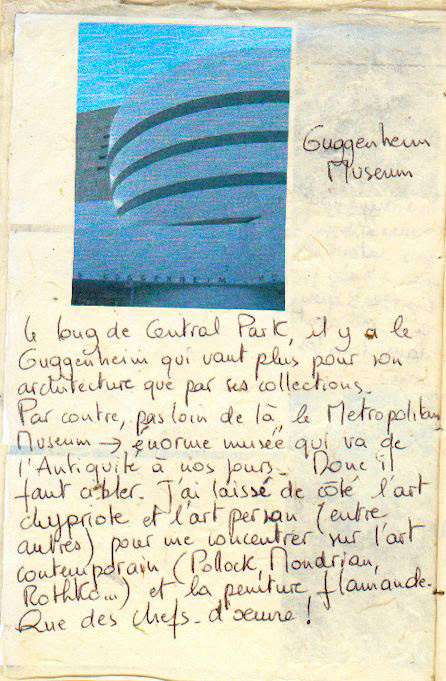 Guggenheim
Museum
GUGGENHEIM
Le long de Central Park, il y a le
Guggenheim qui vaut plus pour son
architecture que par ses collections.
Par contre, pas loin de là, le Metropolitan
Museum → énorme musée qui va de
l'Antiquité à nos jours. Donc il
faut cibler. J'ai laissé de côté l'art
chypriote et l'art persan (entre
autres) pour me concentrer sur l'art
contemporain (Pollock, Mondrian,
Rothko...) et la peinture flamande.
Que des chefs-d'œuvre !